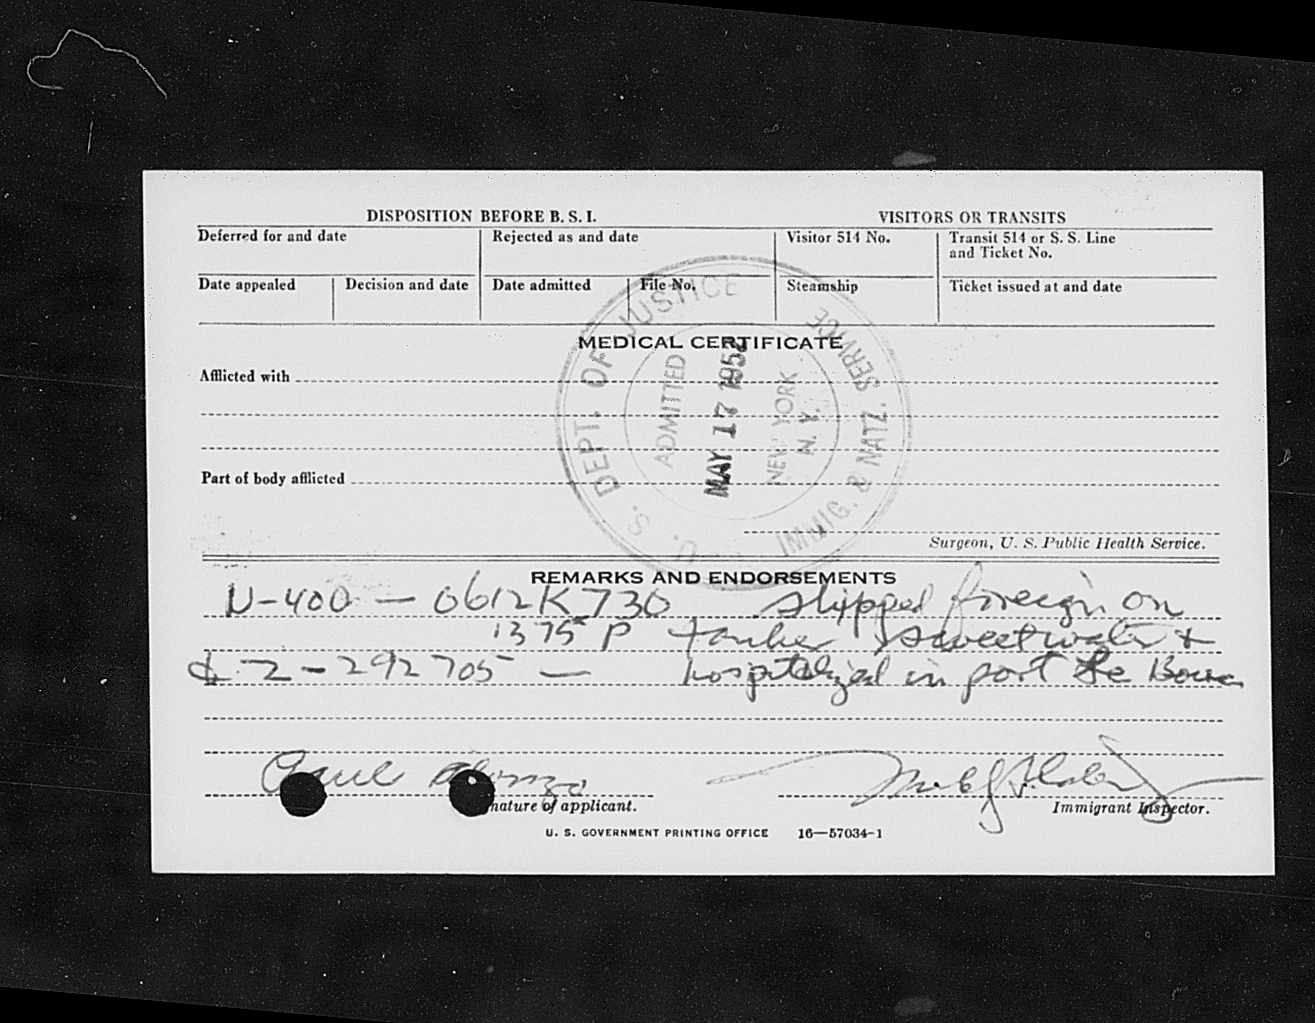 DISPOSITION BEFORE B. S. I.
VISITORS OR TRANSITS
Deferred for and date
Rejected as and date
Visitor 514 No.
Transit 514 or S. S. Line
and Ticket No.
Date appealed
Decision and date
Date admitted
File No.
Steamship
Ticket issued at and date
MEDICAL CERTIFICATE
Afflicted with
Part of body afflicted
U. S. DEPT. OF JUSTICE
IMMIG. & NATZ. SERVICE
ADMITTED
MAY 17 1952
NEW YORK
N. Y.
Surgeon, U. S. Public Health Service.
REMARKS AND ENDORSEMENTS
N-400 — 0612K730 shipped foreign on
1375 P tanker sweetwater +
& 2-292705 — hospitalized in port
Alonzo
nature of applicant.
Immigrant Inspector.
U. S. GOVERNMENT PRINTING OFFICE 16—57034-1